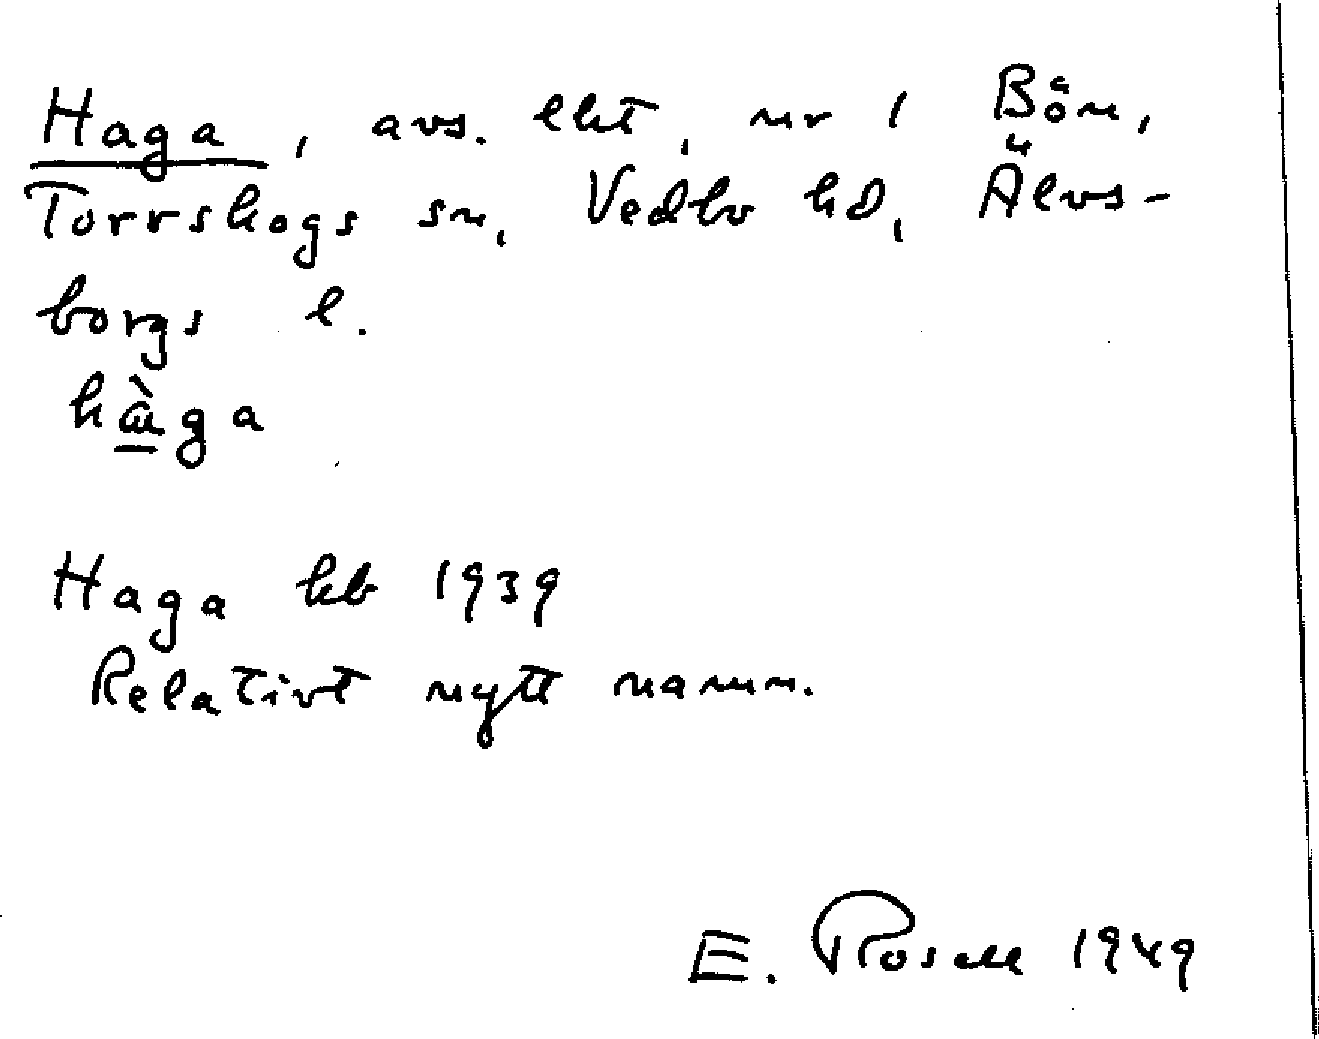 Haga, avs. lht, nr 1 Bön,
Torrskogs sn, Vedbo hd, Älvs-
borgs l.
hàga
Haga kb 1939
Relativt nytt namn.
E. Rosell 1949